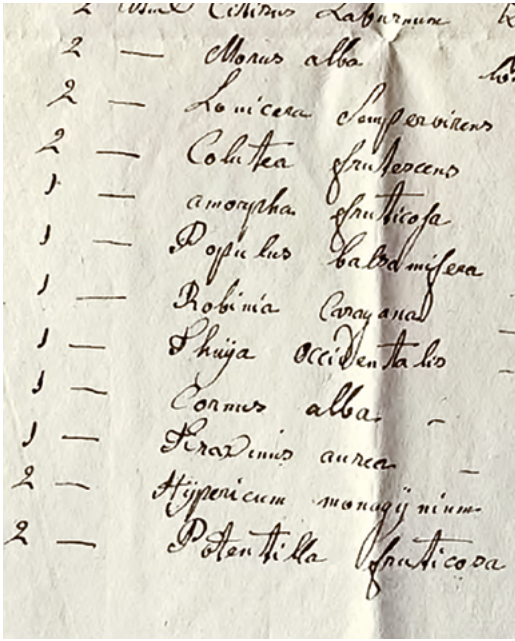 2 Citisus Laburnum
2 — Morus alba
2 — Lonicera Sempervirens
2 — Colutea frutescens
1 — amorpha fruticosa
1 — Populus balsamifera
1 — Robinia Caragana
1 — Thuÿa occidentalis
1 — Cornus alba -
1 — Fraxinus aurea -
2 — Hÿpericum monogÿnium
2 — Potentilla fruticosa